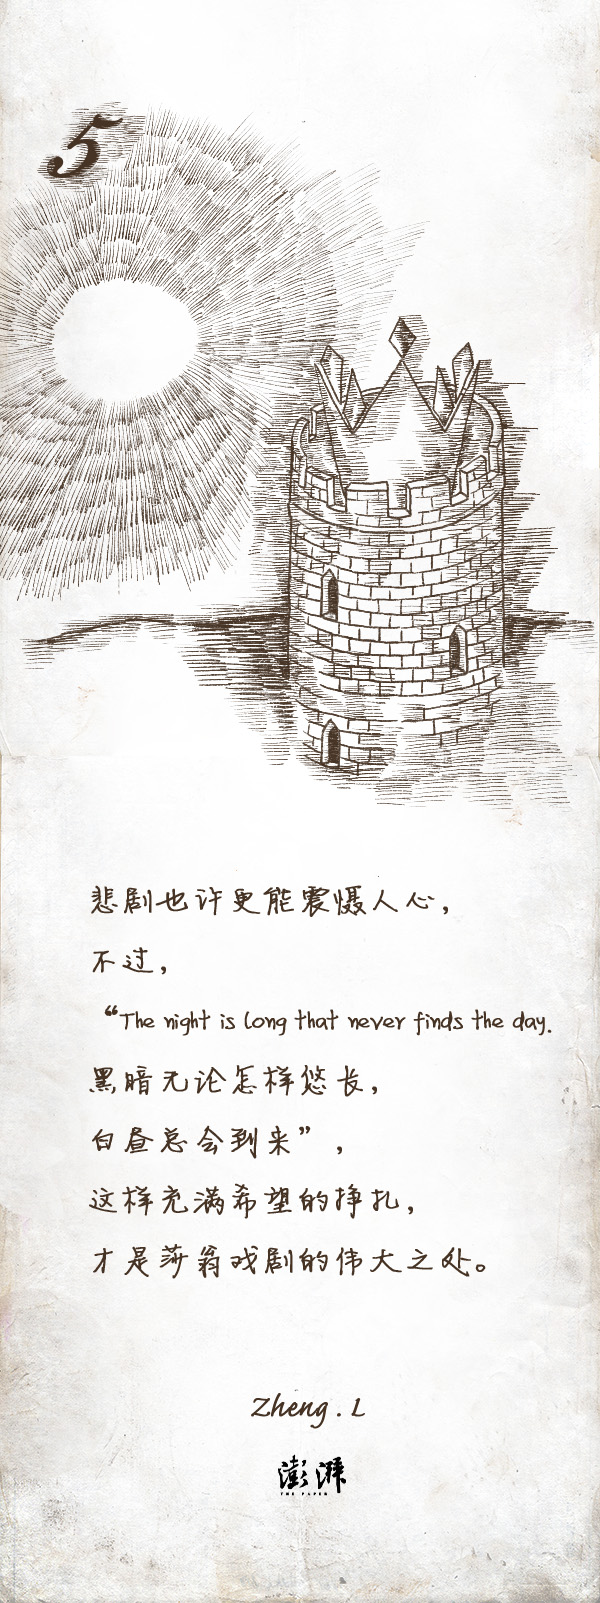 5
悲剧也许更能震慑人心，
不过，
“The night is long that never finds the day.
黑暗无论怎样悠长，
白昼总会到来”，
这样充满希望的挣扎，
才是莎翁戏剧的伟大之处。
Zheng . L
澎湃
THE PAPER